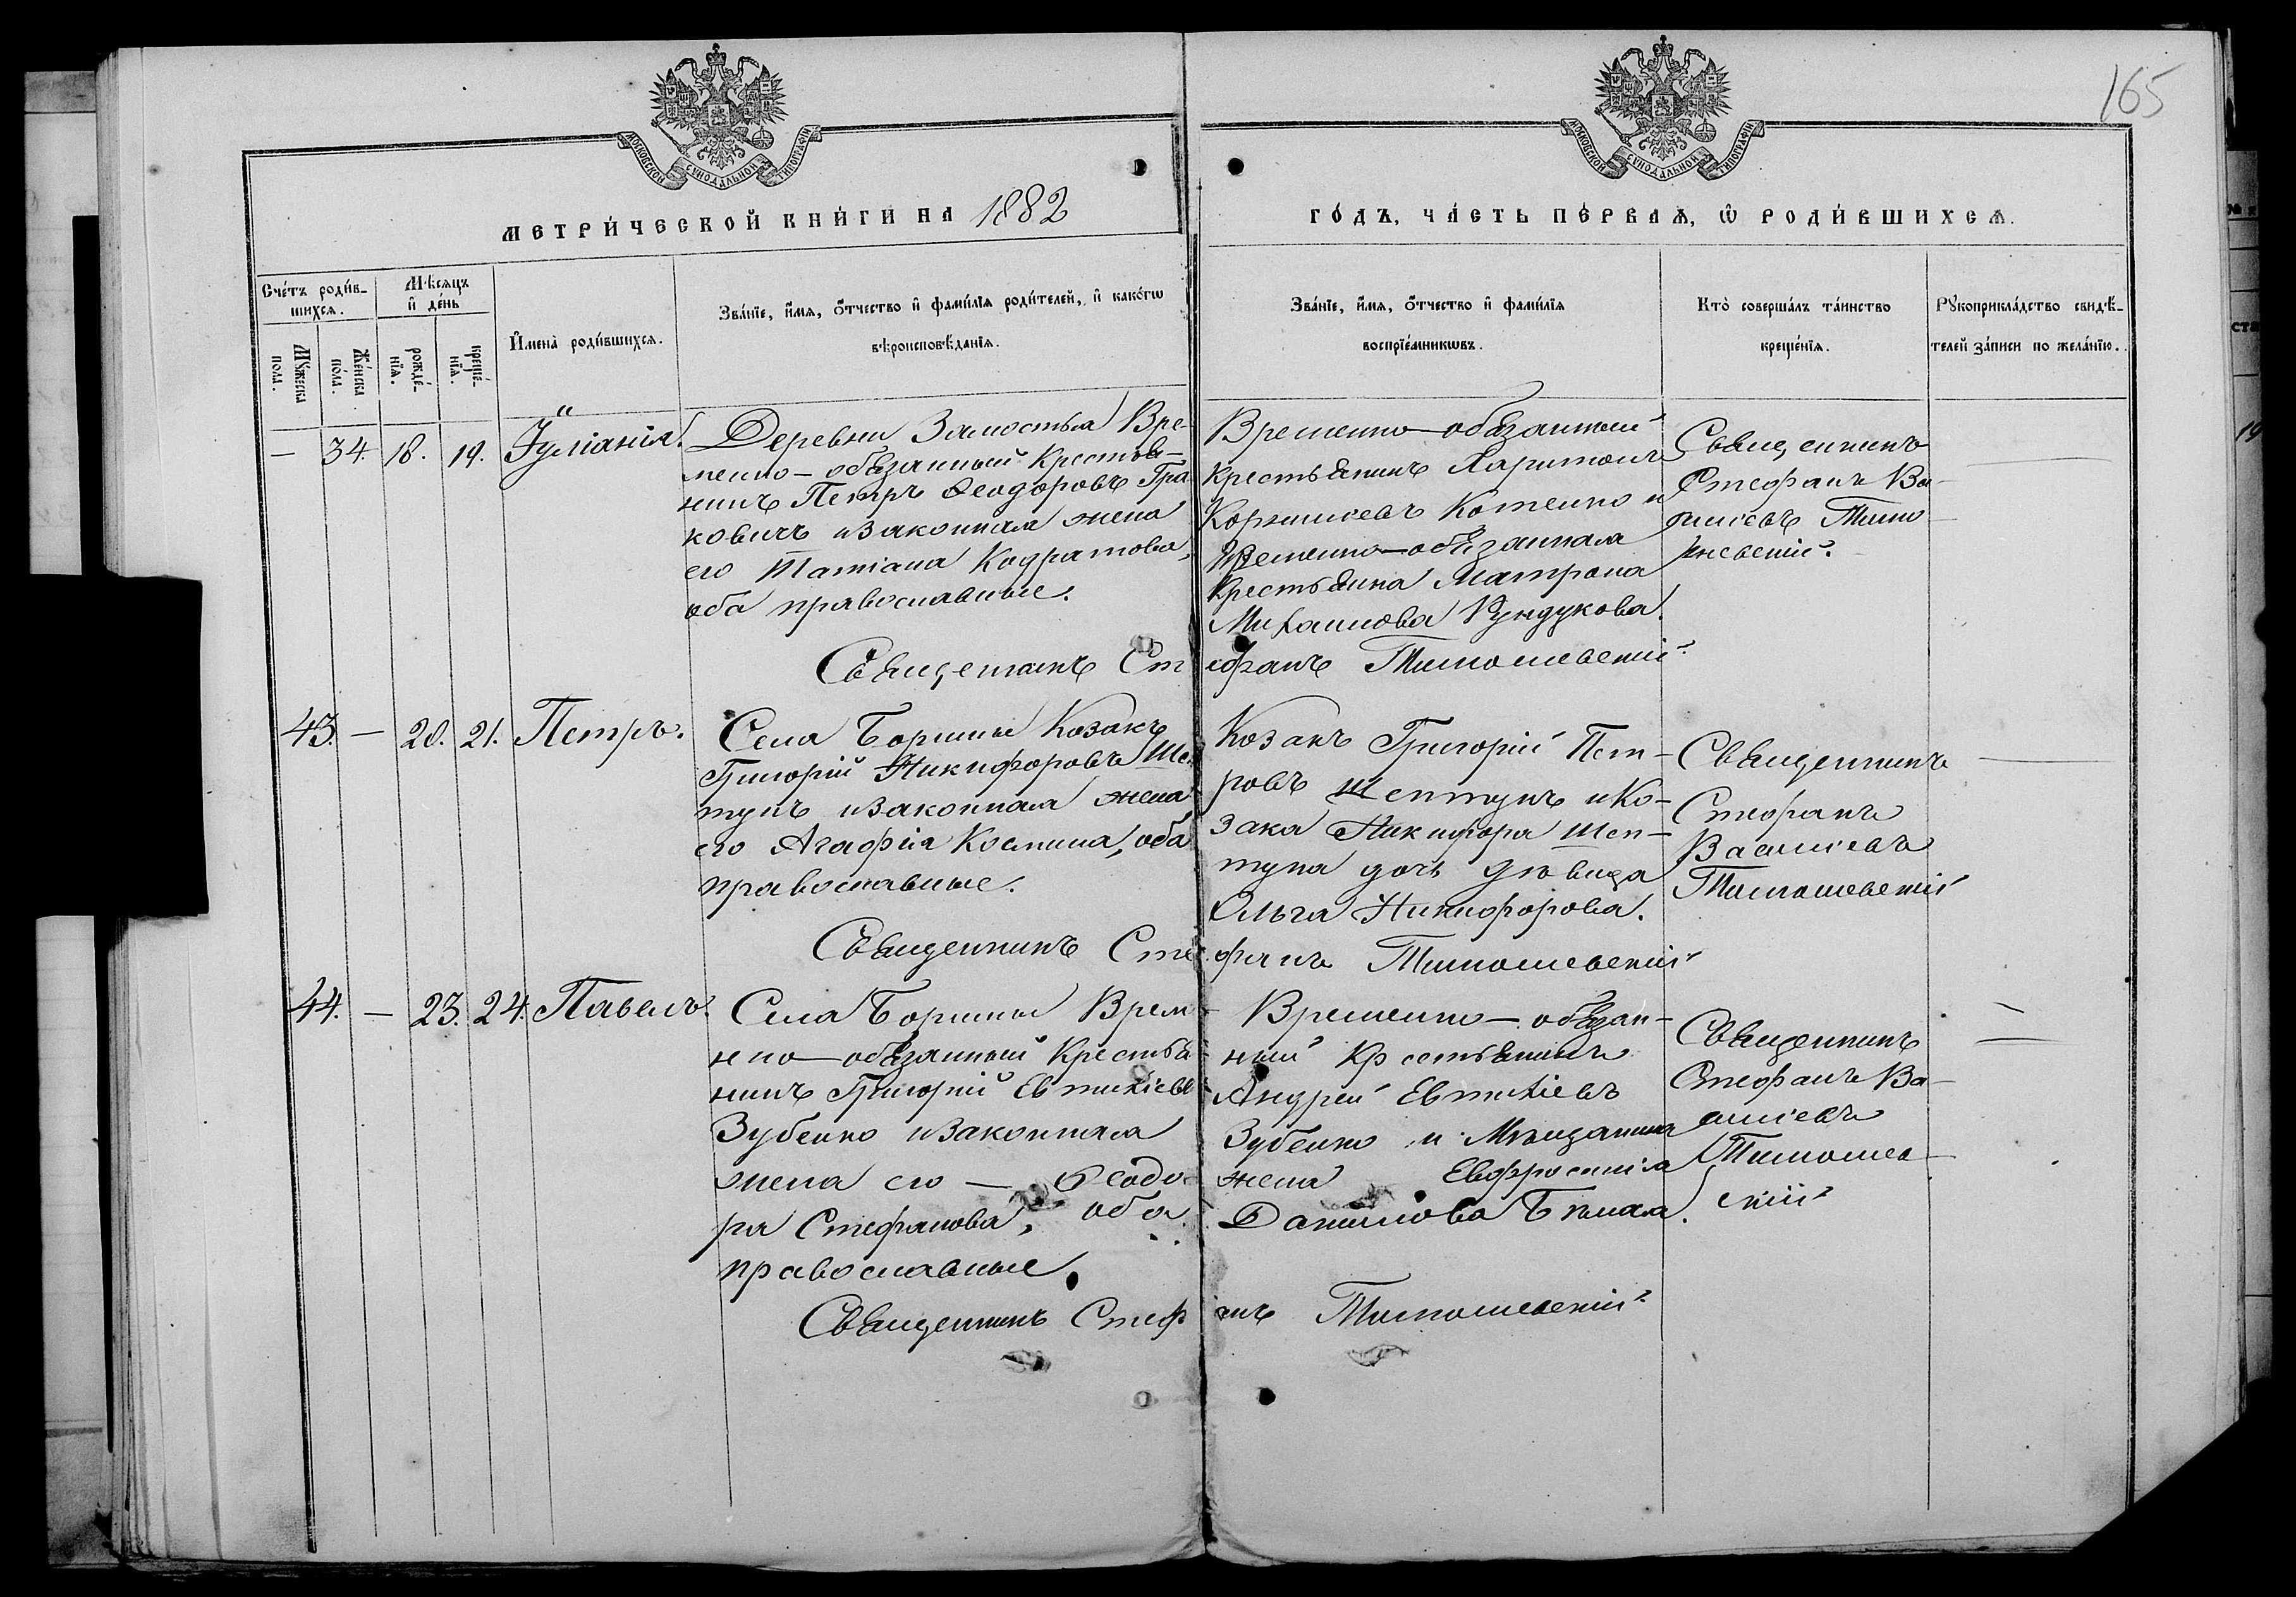 165
МОСКОВСКОЙ СѴНОДАЛЬНОЙ ТИПОГРАФІИ
МОСКОВСКОЙ СѴНОДАЛЬНОЙ ТИПОГРАФІИ
МЕТРИ́ЧЕСКОЙ КНИ́ГИ НА 1882
ГО́ДЪ, ЧА́СТЬ ПЕ́РВАѦ, Ѿ РОДИ́ВШИХСѦ.
Сче́тъ роди́в-
шихсѧ.
Мꙋ́жеска
пола.
Же́нска
по́ла.
Мѣ́сѧцъ
и҆ де́нь
рожде́-
нїѧ.
креще́-
нїѧ.
И҆мена̀ роди́вшихсѧ.
Зва́нїе, и҆́мѧ, ѻ҆́тчество и҆ фами́лїѧ роди́телей, и҆ како́гѡ
вѣроисповѣ́данїѧ.
Зва́нїе, и҆́мѧ, ѻ҆́тчество и҆ фами́лїѧ
воспрїе́мникѡвъ.
Кто̀ соверша́лъ та́инство
креще́нїѧ.
Рꙋкоприкла́дство свидѣ́-
телей за́писи по жела́нїю.
— 34. 18. 19. Іуліанія.
Деревни Замостья Вре-
менно-обязанный Крестья-
нинъ Петръ Ѳеодоровъ Гра
ковичъ и законная жена
его Татіана Кодратова,
оба православные.
Временно-обязанный
крестьянинъ Харитонъ
Корниліевъ Котенко и
временно-обязанная
крестьянка Матрона
Михаилова Кундукова.
Священникъ
Стефанъ Ва-
силіевъ Тимо
шевскій.
Священникъ Стефанъ Тимошевскій
43. — 20. 21. Петръ.
Села Борщны Козакъ
Григорій Никифоровъ Шеп
тунъ и законная жена
его Агафія Космина, оба
православные.
Козакъ Григорій Пет-
ровъ Шептунъ и Ко-
зака Никифора Шеп-
туна дочь дѣвица
Ольга Никифорова.
Священникъ
Стефанъ
Василіевъ
Тимошевскій
Священникъ Стефанъ Тимошевскій
44. — 23. 24. Павелъ.
Села Борщны Време
нно-обязанный Крестья
нинъ Григорій Евтихіевъ
Зубенко и законная
жена его — Ѳеодо
ра Стефанова, оба
православные.
Временно-обязан-
ный Крестьянинъ
Андрей Евтихіевъ
Зубенко и Мѣщанина
жена Евфросинія
Данилова Бѣлая.
Священникъ
Стефанъ Ва-
силіевъ
Тимошев-
скій
Священникъ Стефанъ Тимошевскій